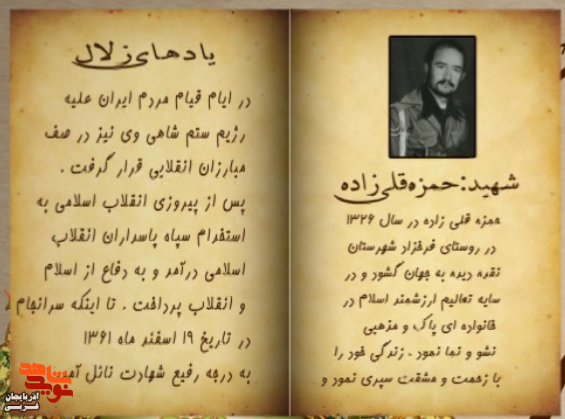 شهید: حمزه قلی زاده
حمزه قلی زاده در سال ۱۳۲۶
در روستای فرخزاد شهرستان
نقده دیده به جهان گشود و در
سایه تعالیم ارزشمند اسلام در
خانواده ای پاک و مذهبی
نشو و نما نمود . زندگی خود را
با زحمت و مشقت سپری نمود و
یادهای زلال
در ایام قیام مردم ایران علیه
رژیم ستم شاهی وی نیز در صف
مبارزان انقلابی قرار گرفت .
پس از پیروزی انقلاب اسلامی به
استخدام سپاه پاسداران انقلاب
اسلامی درآمد و به دفاع از اسلام
و انقلاب پرداخت . تا اینکه سرانجام
در تاریخ ۱۹ اسفند ماه ۱۳۶۱
به درجه رفیع شهادت نائل آمد
نوید شاهد
آذربایجان
غربی